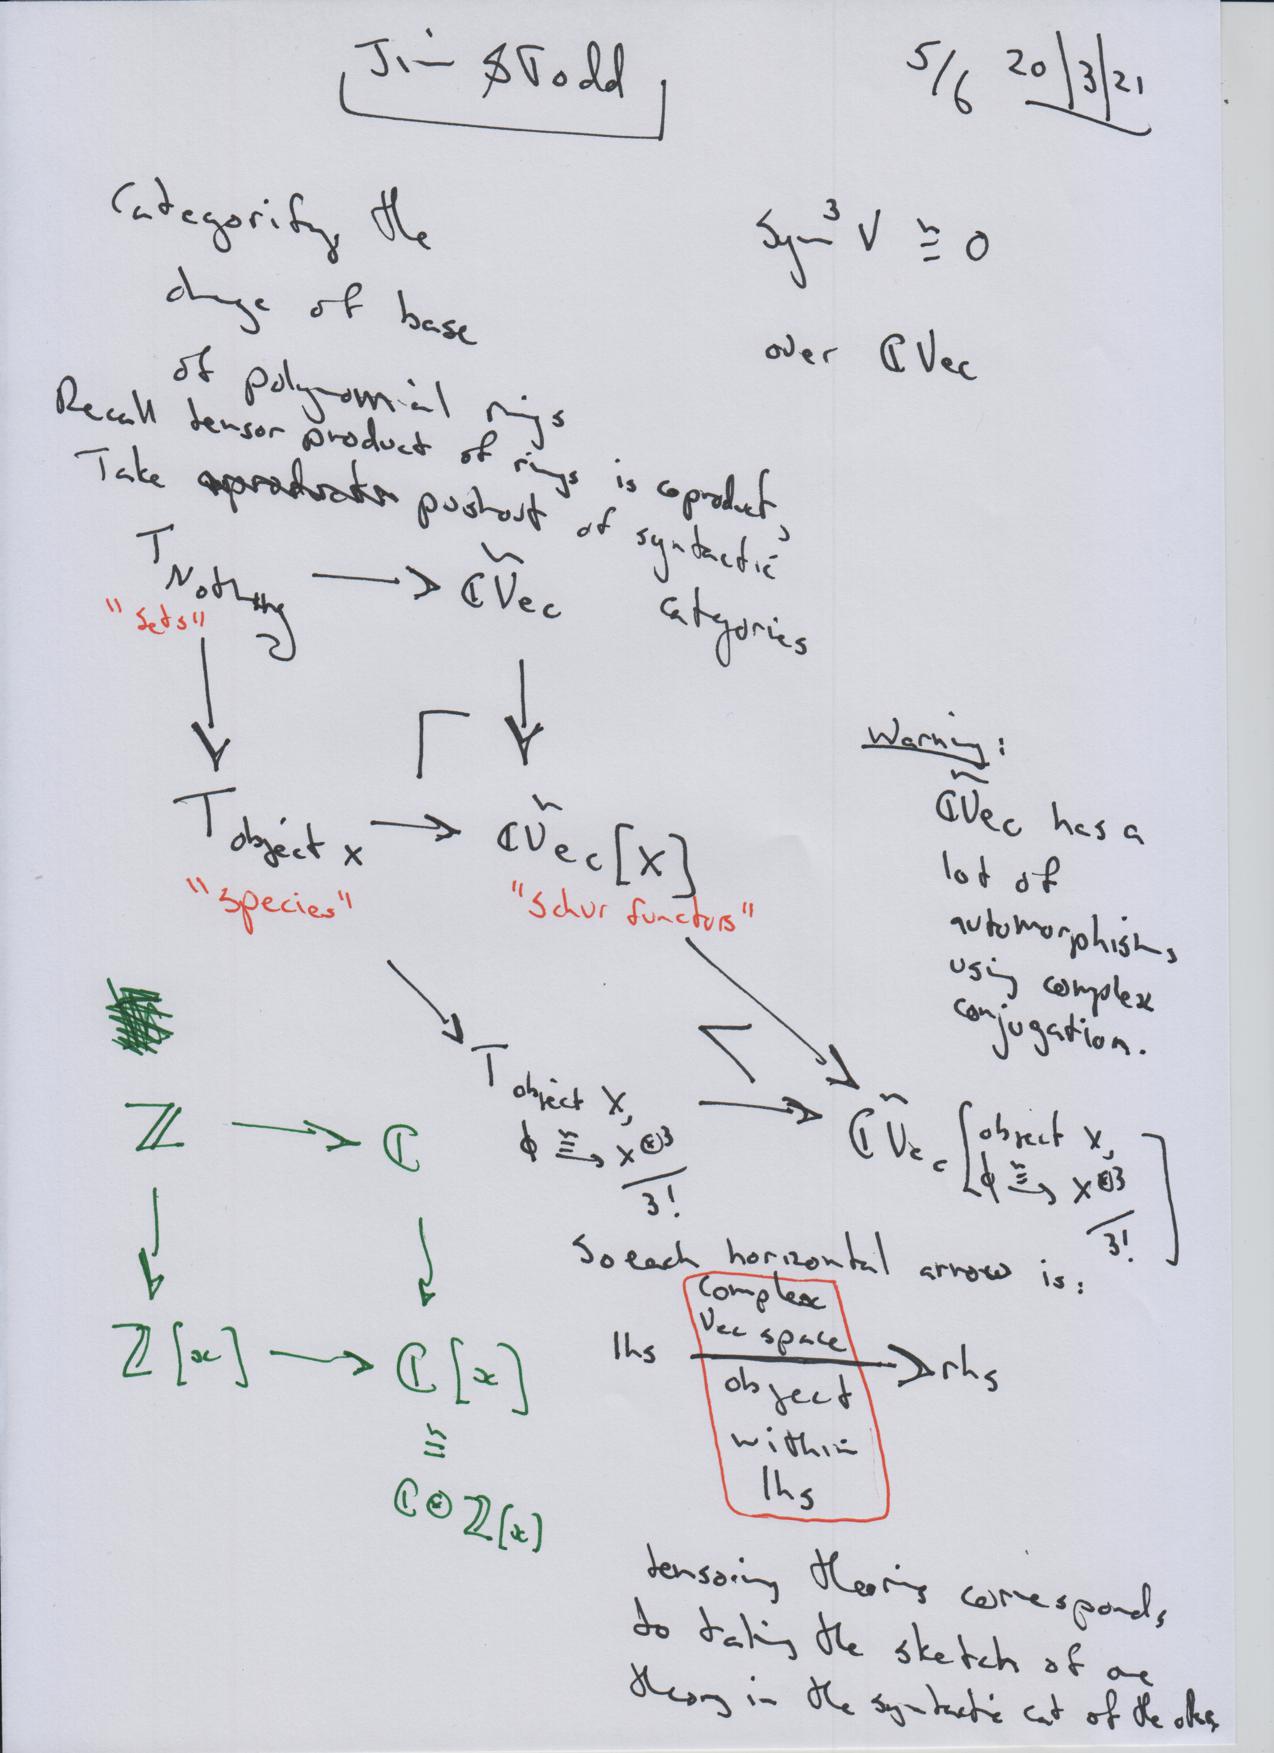 Jim & Todd
5/6 20/3/21
Categorify the
change of base
of polynomial rings
Recall tensor product of rings is coproduct,
Take pushout of syntactic
categories
Sym³ V ≅ 0
over ℂVec
T Nothing → ℂVec
"Sets"
T object X → ℂVec[X]
"Species" "Schur functors"
Warning:
ℂVec has a
lot of
automorphisms
using complex
conjugation.
T object X,
ϕ ≅→ X^⊗3
/3!
→ ℂVec [object X,
ϕ ≅→ X^⊗3
/3!]
ℤ → ℂ
ℤ[x] → ℂ[x]
≅
ℂ⊗ℤ[x]
So each horizontal arrow is:
Complex
Vec space
lhs → rhs
object
within
lhs
tensoring theories corresponds
to taking the sketch of one
theory in the syntactic cat of the other